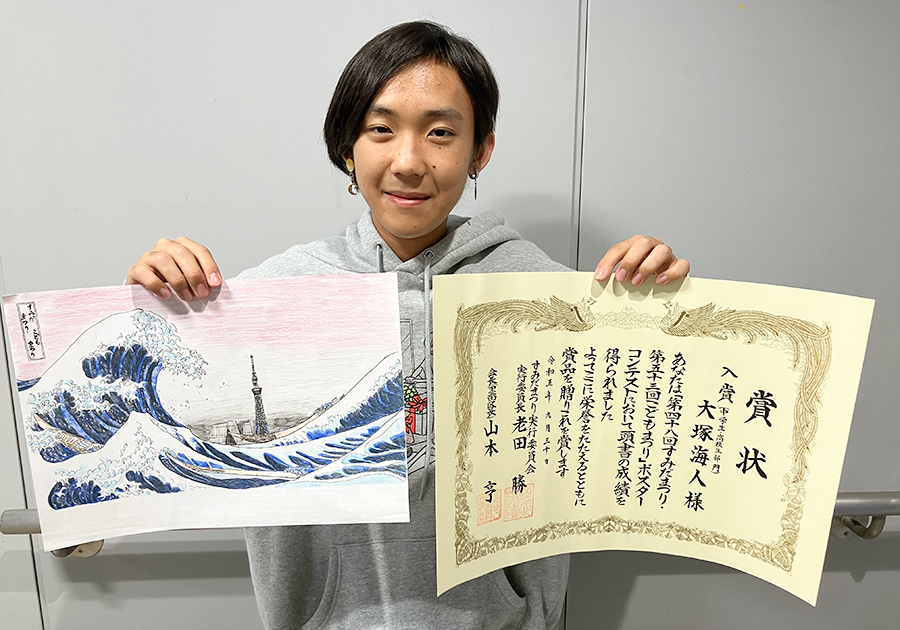 すみだ まつり
こども まつり
賞状
入賞(中学生・高校生部門)
大塚海人様
あなたは第四十八回すみだまつり・
第五十三回こどもまつりポスター
コンテストにおいて頭書の成績を
得られました
よってここに栄誉をたたえるとともに
賞品を贈りこれを賞します
令和五年 九月三十日
すみだまつり実行委員会
実行委員長 老田 勝
山本 亨